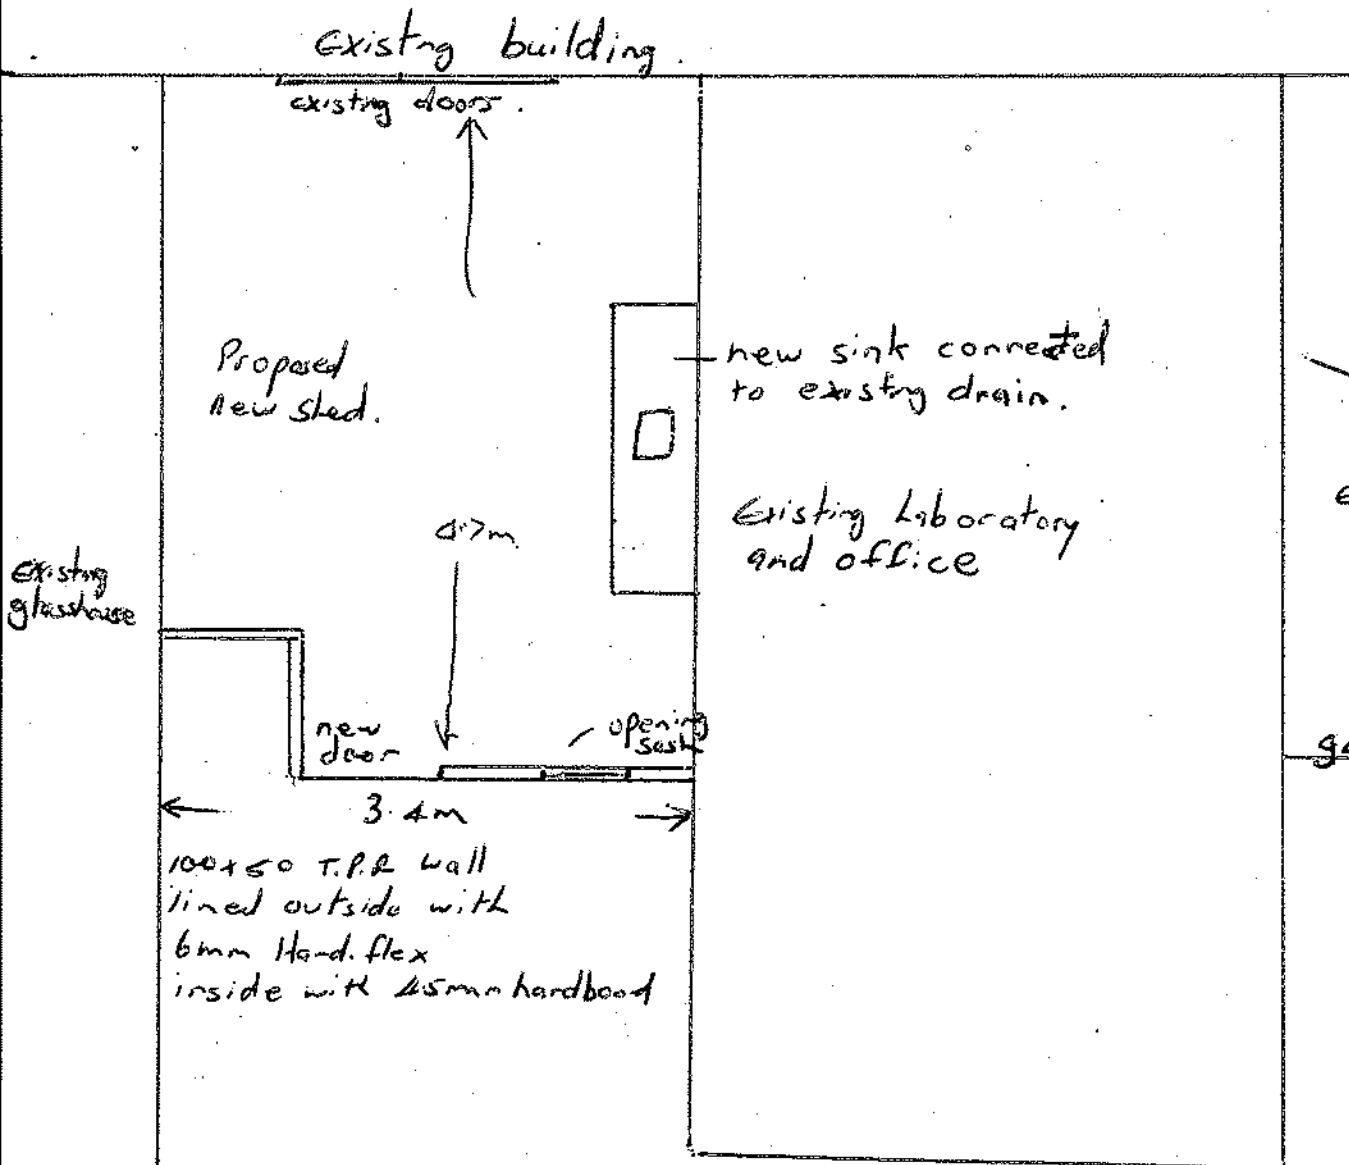 Existing building.
existing doors.
Proposed
new shed.
new sink connected
to existing drain.
4.7m
Existing Laboratory
and office
Existing
glasshouse
new
door
opening
sash
3.4m
100x50 T.P.R wall
lined outside with
6mm Hardiflex
inside with 4.5mm hardboad